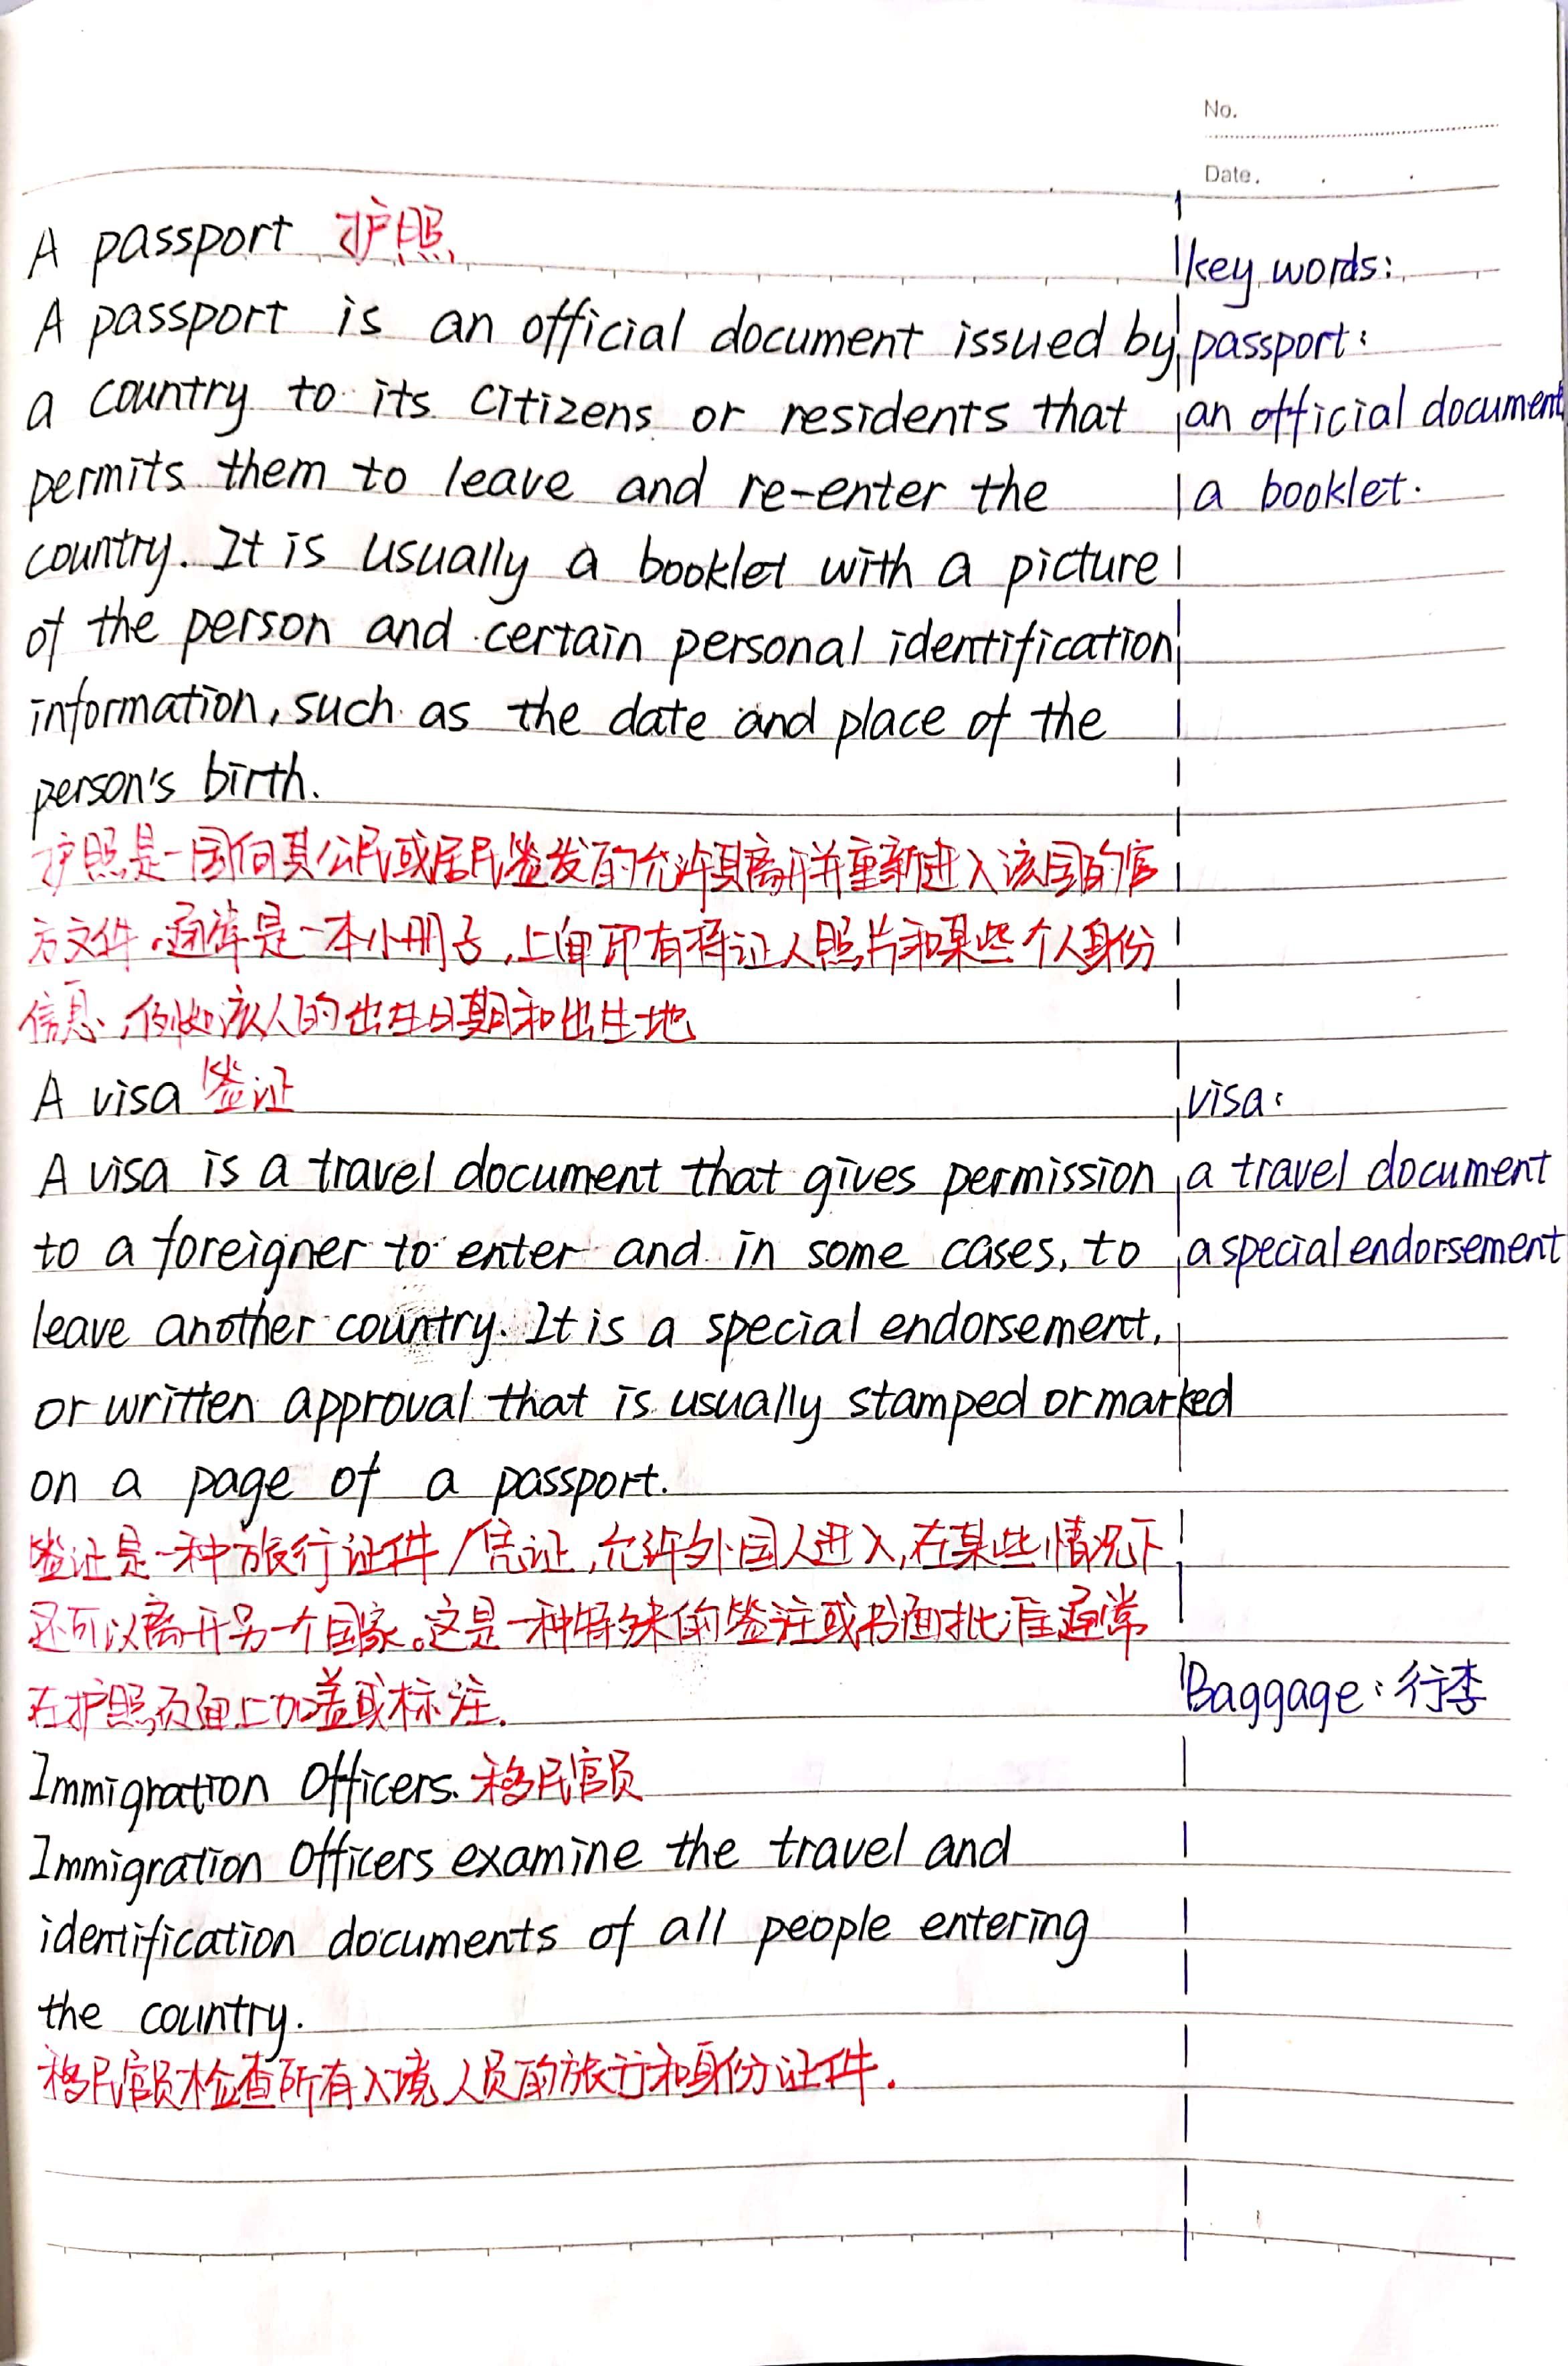 No.
Date.
A passport 护照
A passport is an official document issued by
a country to its citizens or residents that
permits them to leave and re-enter the
country. It is usually a booklet with a picture
of the person and certain personal identification
information, such as the date and place of the
person's birth.
护照是一国向其公民或居民签发的允许其离开并重新进入该国的官
方文件。通常是一本小册子,上面印有持证人照片和某些个人身份
信息,例如该人的出生日期和出生地
A visa 签证
A visa is a travel document that gives permission
to a foreigner to enter and in some cases, to
leave another country. It is a special endorsement,
or written approval that is usually stamped or marked
on a page of a passport.
签证是一种旅行证件/凭证,允许外国人进入,在某些情况下
还可以离开另一个国家。这是一种特殊的签注或书面批准通常
在护照页面上加盖或标注.
Immigration Officers. 移民官员
Immigration Officers examine the travel and
identification documents of all people entering
the country.
移民官员检查所有入境人员的旅行和身份证件.
key words:
passport:
an official document
a booklet.
visa:
a travel document
a special endorsement
Baggage: 行李